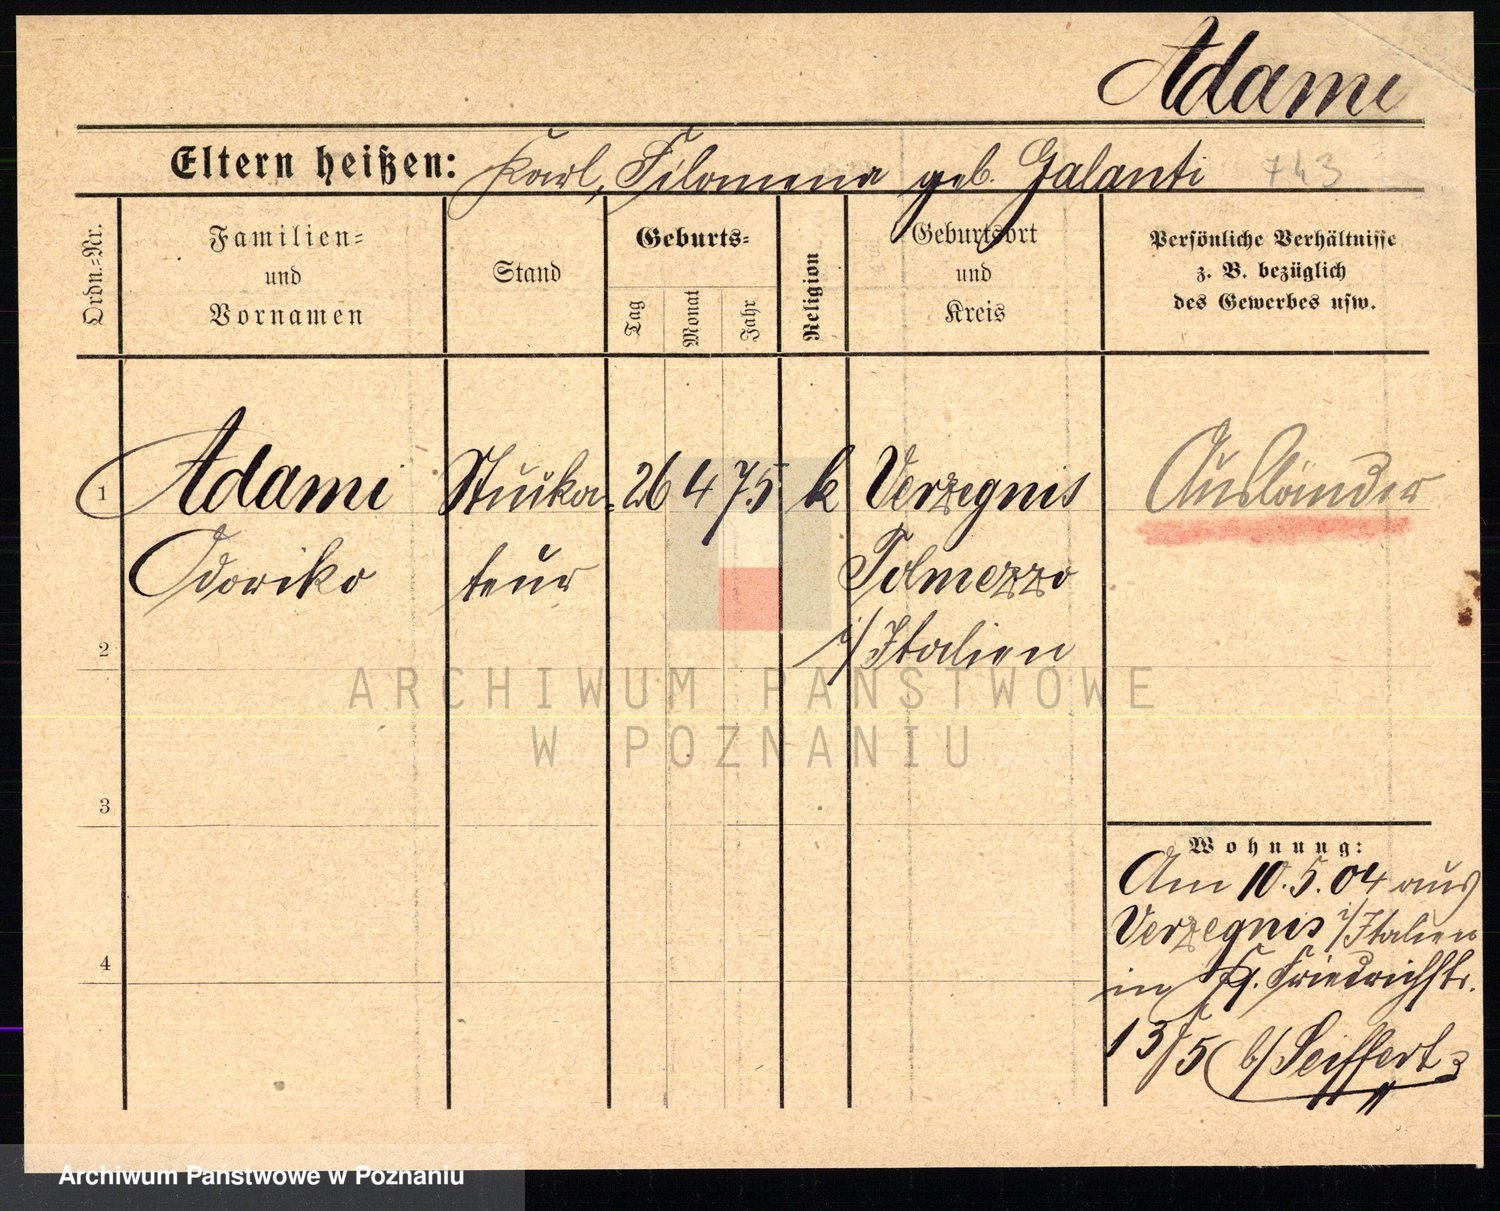 Adami
Eltern heißen: Karl, Filomena geb. Galanti 743
Ordn.-Nr.
Familien-
und
Vornamen
Stand
Geburts-
Tag
Monat
Jahr
Religion
Geburtsort
und
Kreis
Persönliche Verhältnisse
z. B. bezüglich
des Gewerbes usw.
1 Adami Stucka- 26 4 75 k Verzegnis Ausländer
Odoriko teur Tolmezzo
i/Italien
2
3
4
Wohnung:
Am 10.5.04 aus
Verzegnis i/Italien
in Friedrichstr.
13/5 b/Seiffert
ARCHIWUM PAŃSTWOWE
W POZNANIU
Archiwum Państwowe w Poznaniu